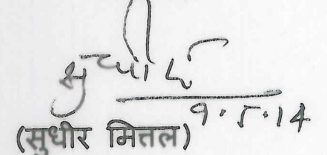 9.5.14
(सुधीर मित्तल)